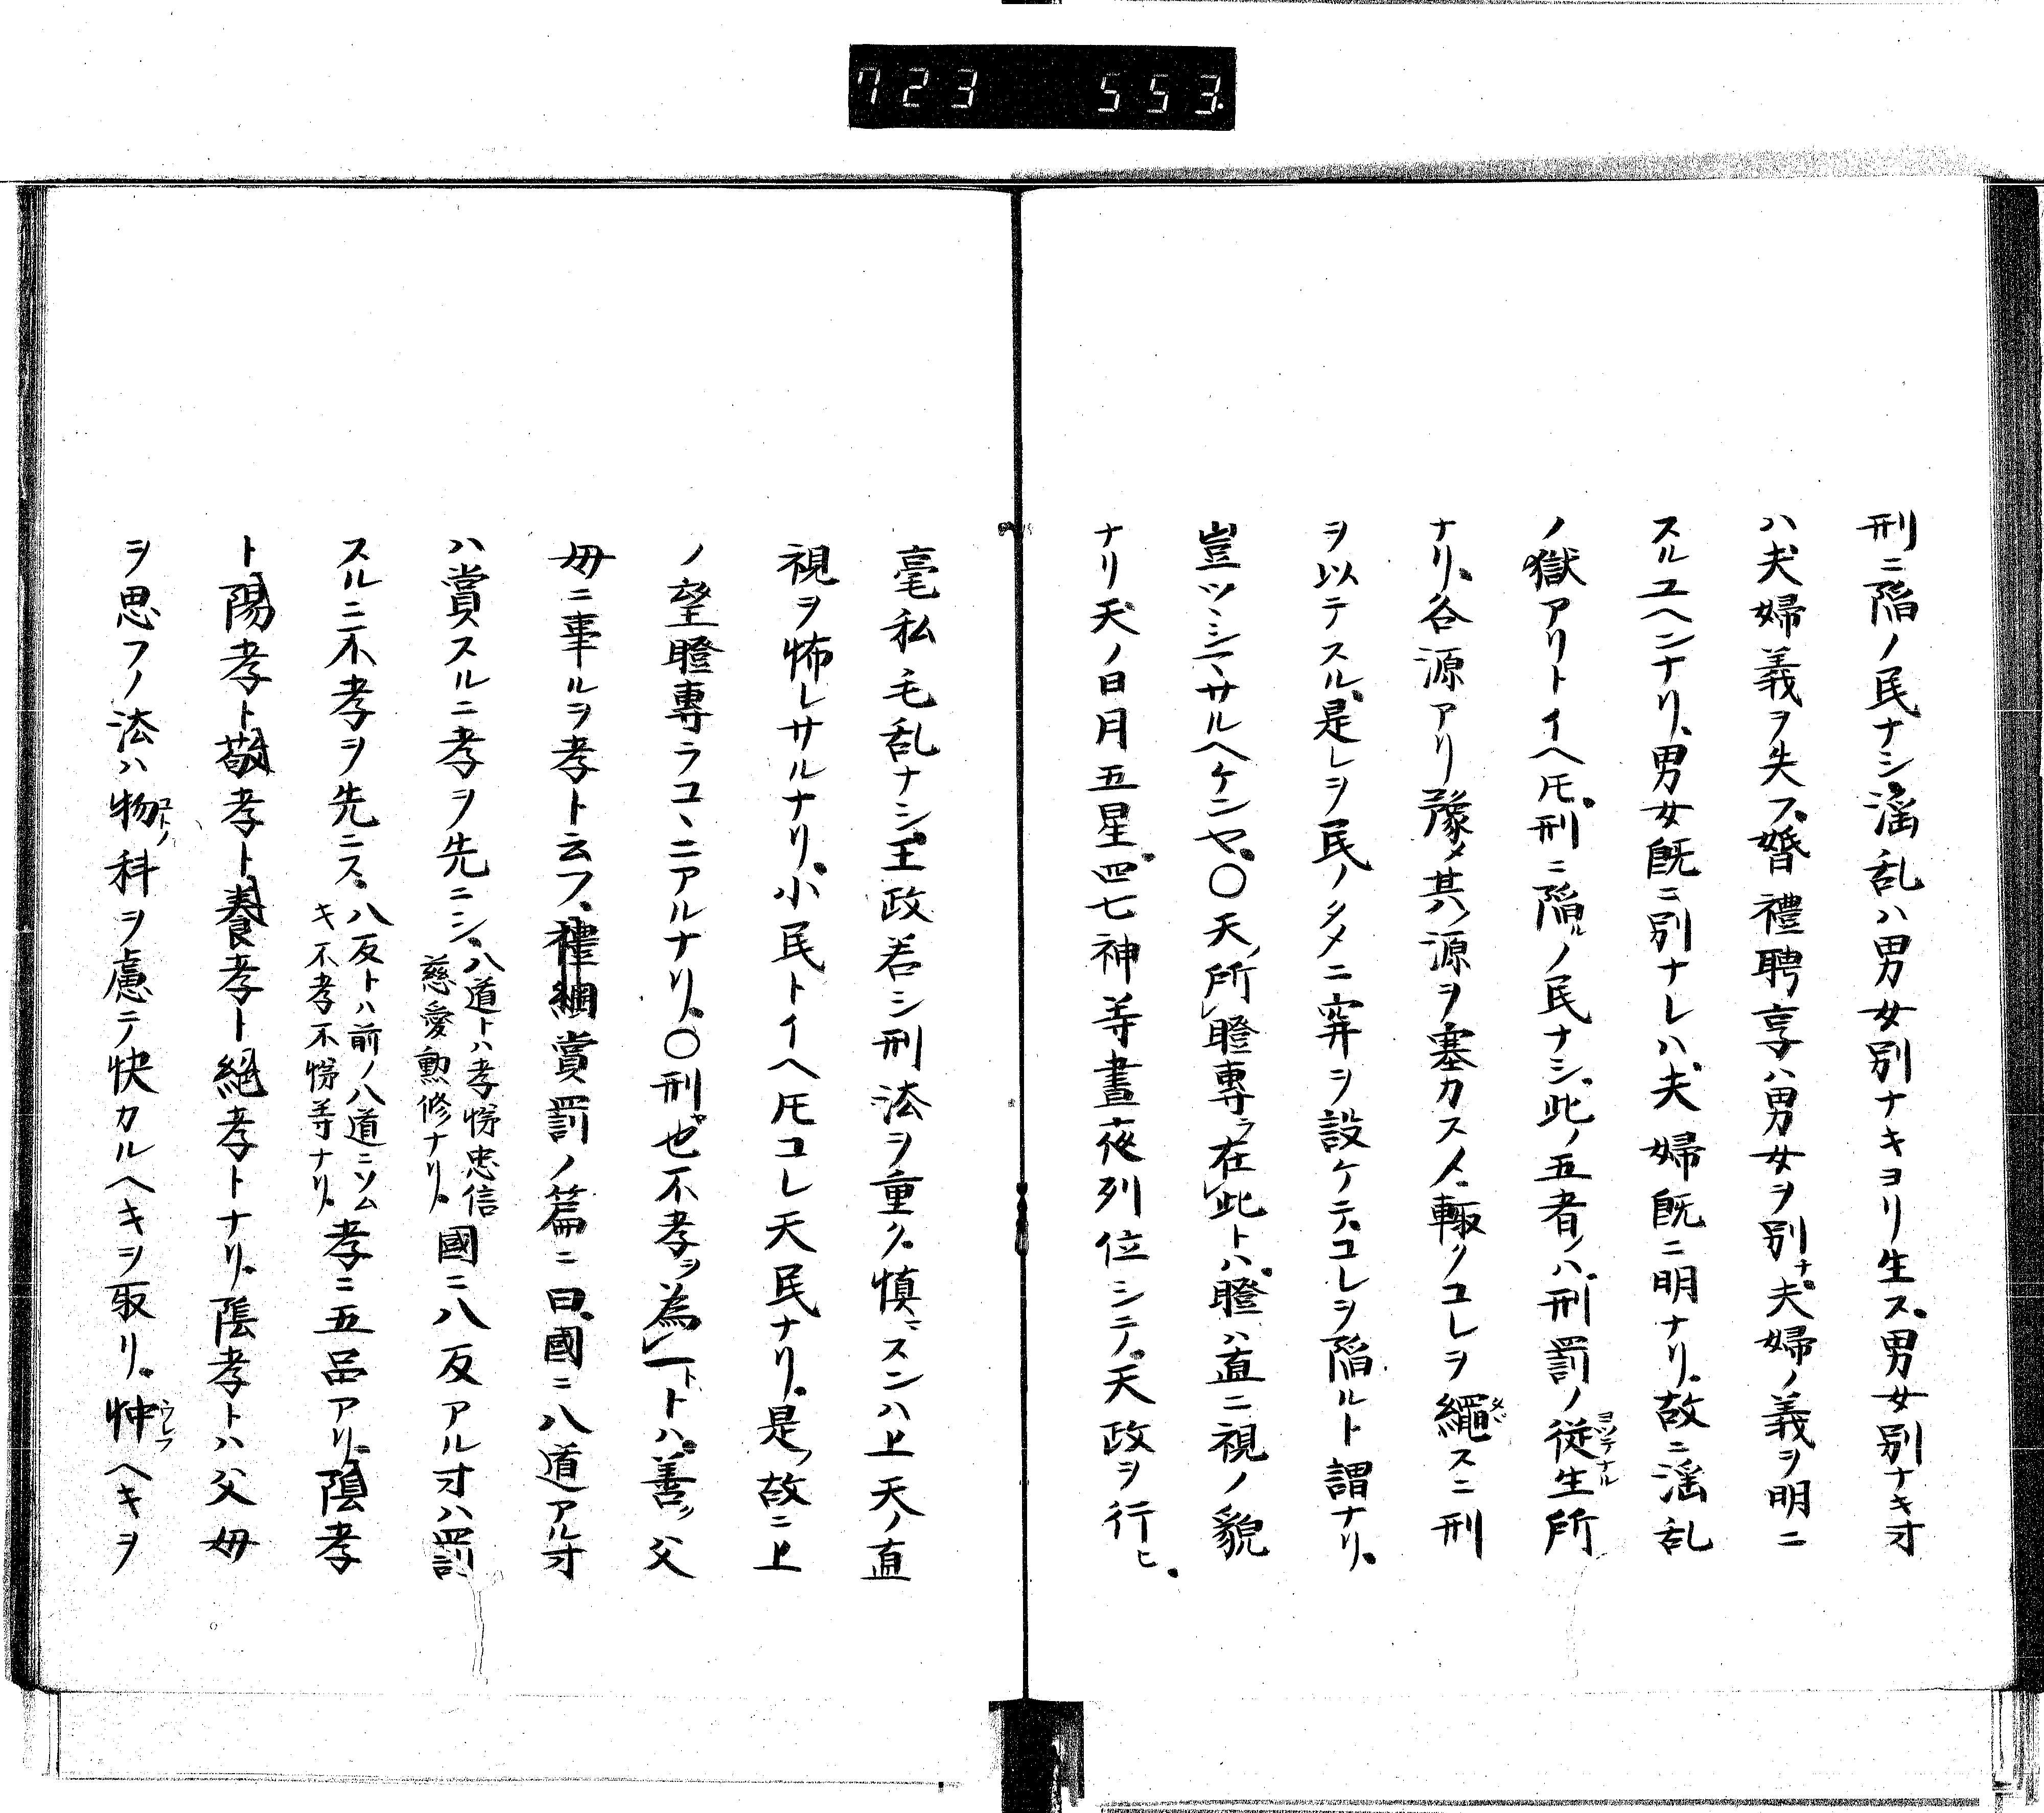 723 553
刑ニ陥ノ民ナシ、滛乱ハ男女別ナキヨリ生ス、男女別ナキオ
ハ夫婦義ヲ失フ、婚禮聘享ハ男女ヲ別ナ夫婦ノ義ヲ明ニ
スルユヘンナリ、男女既ニ別ナレハ夫婦既ニ明ナリ、故ニ滛乱
ノ獄アリトイヘ𪜈、刑ニ陥ルノ民ナシ、此ノ五者ノハ刑罰ノ従生所
ヨツテナル
ナリ、各源アリ豫メ其ノ源ヲ塞カスメ、輙クコレヲ繩スニ刑
ヲ以テスル、是レヲ民ノタメニ穽ヲ設ケテ、コレヲ陥ルト謂ナリ、
豈ツヽシマサルヘケンヤ、〇天ノ所瞪専ラ在此トハ、瞪ハ直ニ視ノ貌
ナリ天ノ日月五星、四七神等晝夜列位シテ、天政ヲ行ヒ、
毫私毛乱ナシ、王政若シ刑法ヲ重ク、慎ニスンハ上天ノ直
視ヲ怖レサルナリ、小民トイヘ𪜈コレ天民ナリ、是ノ故ニ上
ノ望瞪専ラコヽニアルナリ、〇刑也不孝ヲ為一トハ、善ク父
毋ニ事ルヲ孝ト云フ、禮綱賞罰ノ篇ニ曰、國ニ八道アルオ
ハ賞スルニ孝ヲ先ニシ、八道トハ孝悌忠信
慈愛勲修ナリ、國ニ八反アルオハ罰
スルニ不孝ヲ先ニス、八反トハ前ノ八道ニソム
キ不孝不悌等ナリ、孝ニ五品アリ、陰孝
ト陽孝ト敬孝ト養孝ト絕孝トナリ、陰孝トハ父毋
ヲ思フノ法ハ物科ヲ慮テ快カルヘキヲ取リ、忡ヘキヲ
コトノ
ウレフ